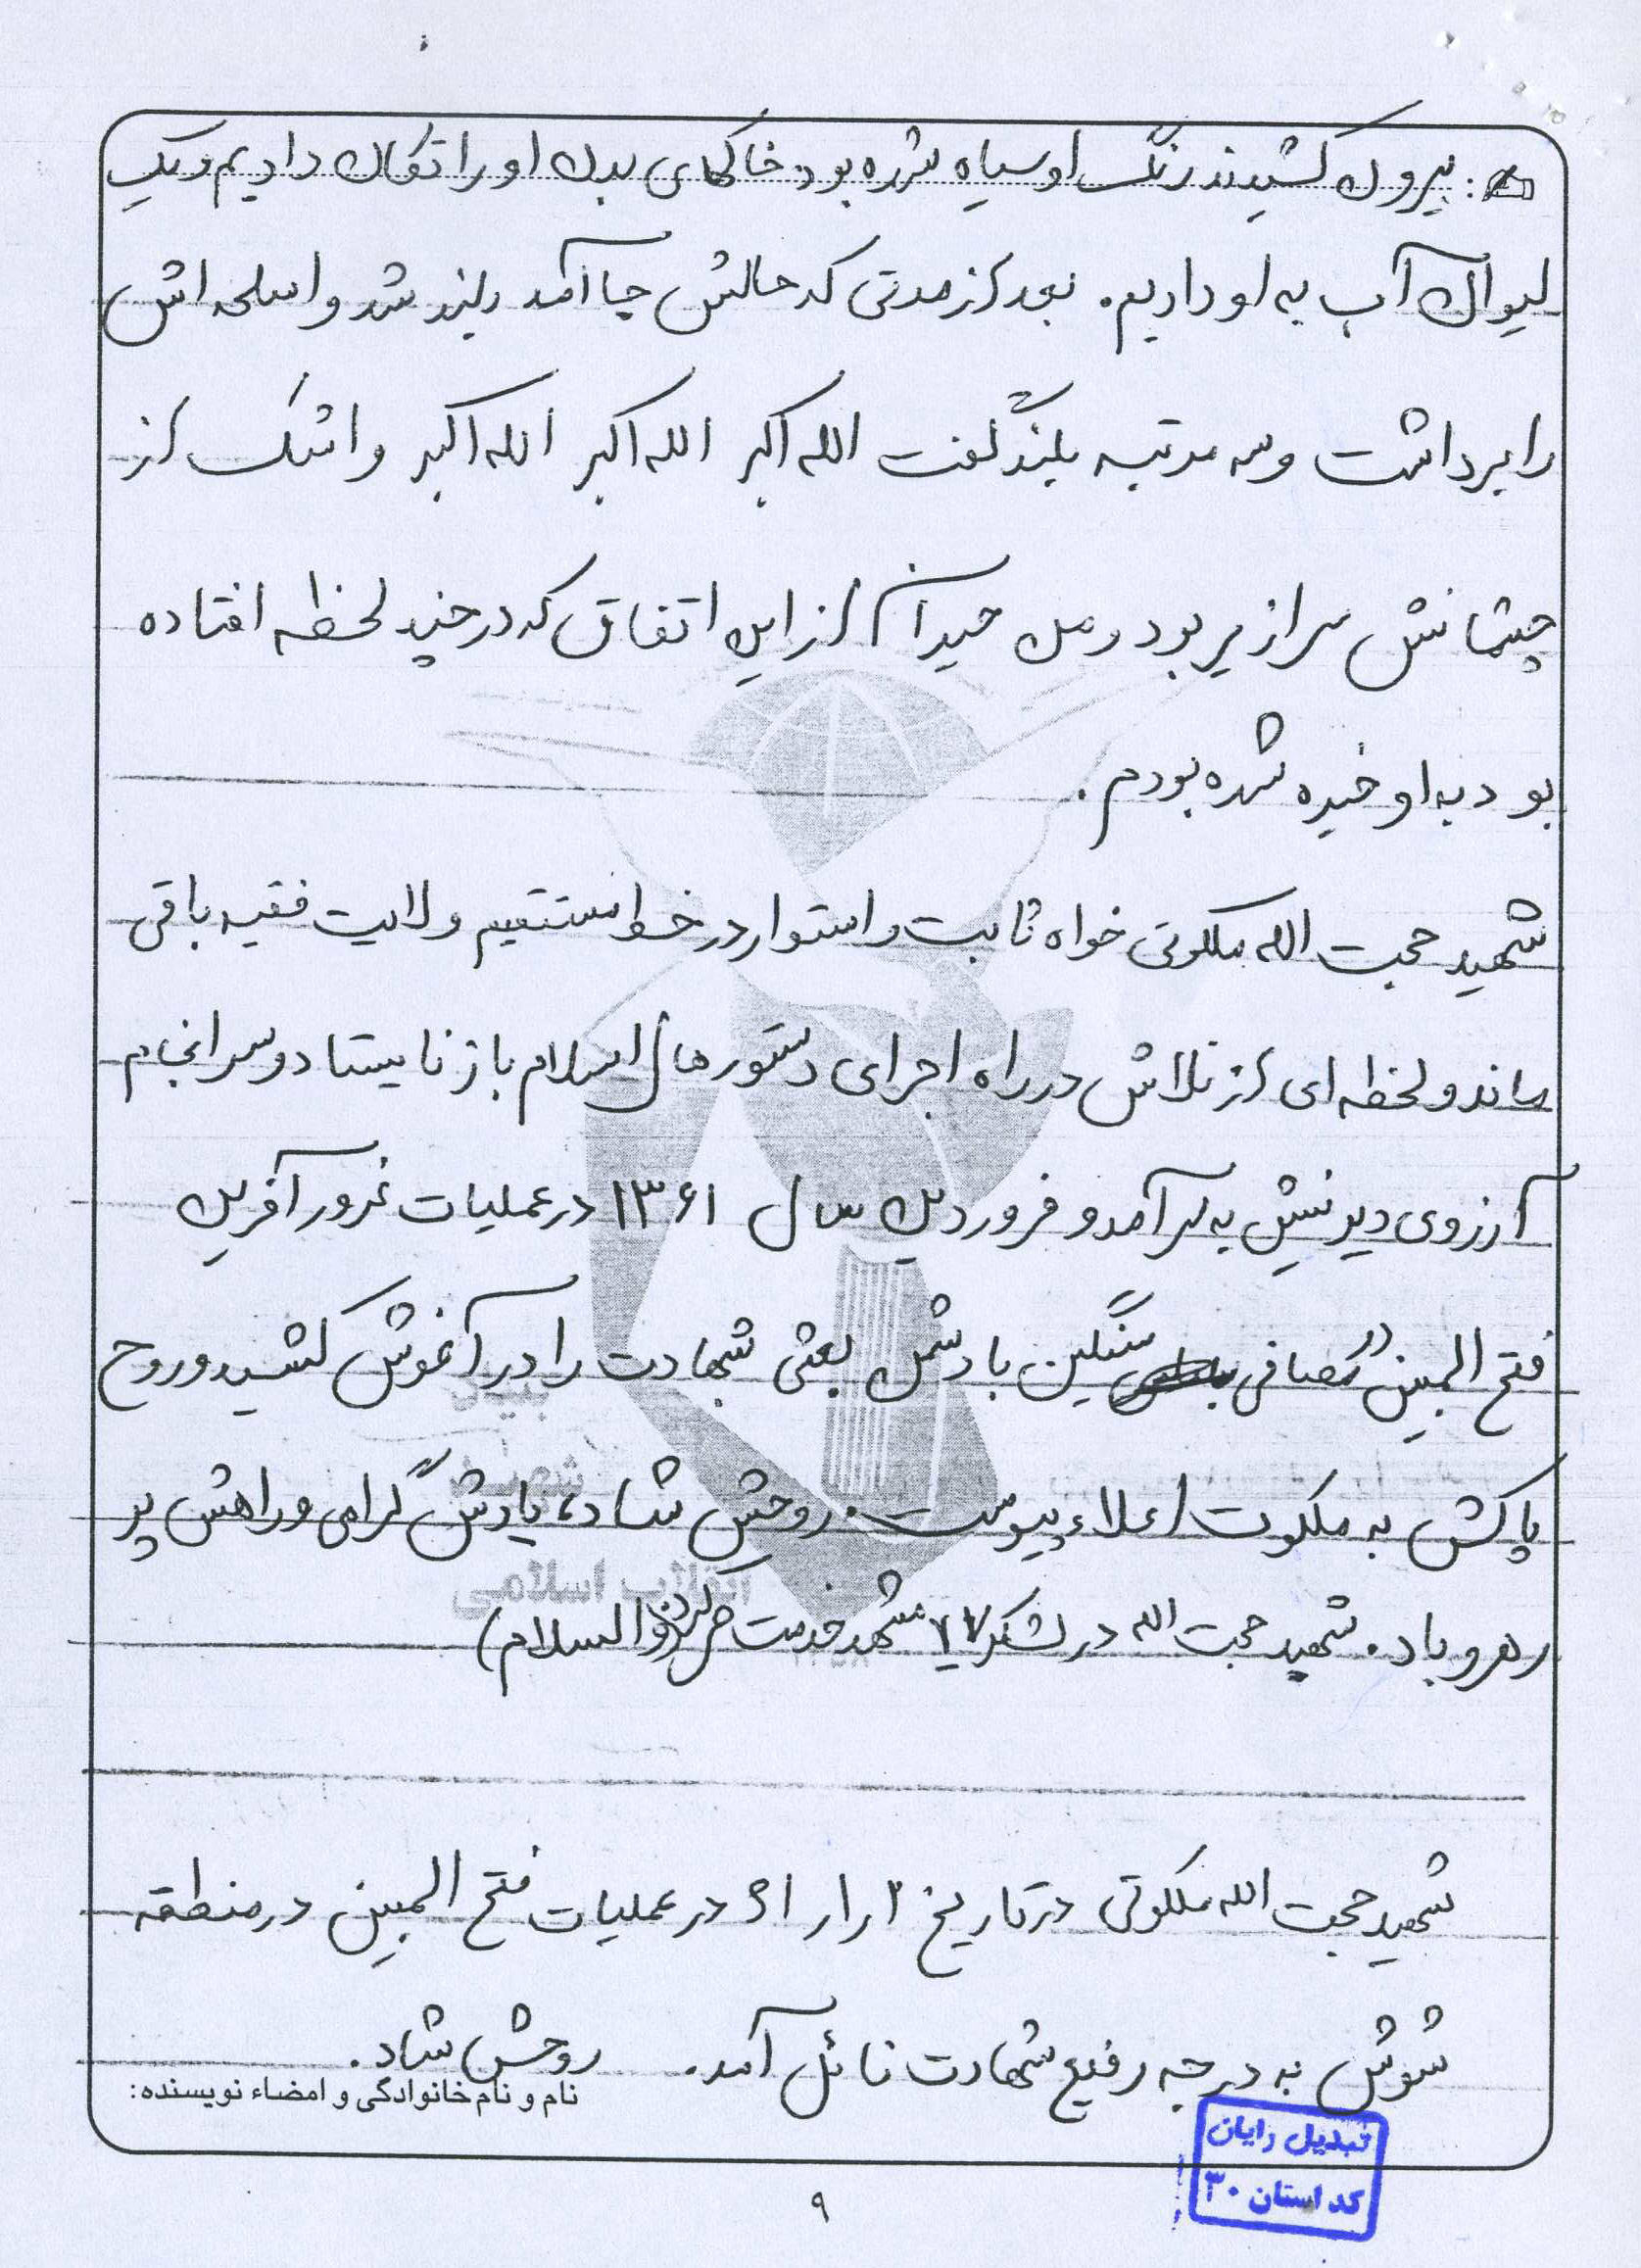 بیرون کشیدند رنگ او سیاه شده بود خاکهای بدن او را تکان دادیم و یک
لیوان آب به او دادیم. بعد از مدتی که حالش جا آمد بلند شد و اسلحه اش
را برداشت و سه مرتبه بلند گفت الله اکبر الله اکبر الله اکبر و اشک از
چشمانش سرازیر بود و من حیران از این اتفاق که در چند لحظه افتاده
بود به او خیره شده بودم.
شهید حجت الله ملکوتی خواه ثابت و استوار در خط مستقیم ولایت فقیه باقی
ماند و لحظه ای از تلاش در راه اجرای دستورهای اسلام باز نایستاد و سرانجام
آرزوی دیرنش به سر آمد و فروردین سال ۱۳۶۱ در عملیات غرور آفرین
فتح المبین در مصافی سنگین با دشمن بعثی شهادت را در آغوش کشید و روح
پاکش به ملکوت اعلاء پیوست. روحش شاد، یادش گرامی و راهش پر
رهرو باد. شهید حجت الله در لشکر ۷۷ مشهد خدمت (والسلام)
شهید حجت الله ملکوتی در تاریخ ۲/۱/۶۱ در عملیات فتح المبین در منطقه
شوش به درجه رفیع شهادت نائل آمد. روحش شاد.
نام و نام خانوادگی و امضاء نویسنده:
تبدیل رایان
کد استان ۳۰
۹